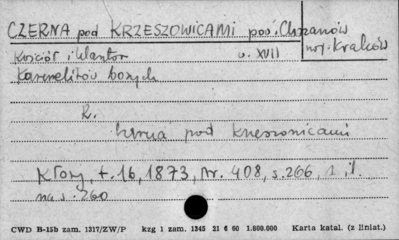 CZERNA pod KRZESZOWICAMI pow. Chrzanów
woj. Kraków
Kościół i klasztor w. XVII
Karmelitów bosych
R.
Czerna pod Krzeszowicami
Kłosy, t. 16, 1873, nr. 408, s. 266, 1 il.
na s. 260
CWD B-15b zam. 1317/ZW/P kzg 1 zam. 1345 21 6 60 1.800.000 Karta katal. (z liniat.)